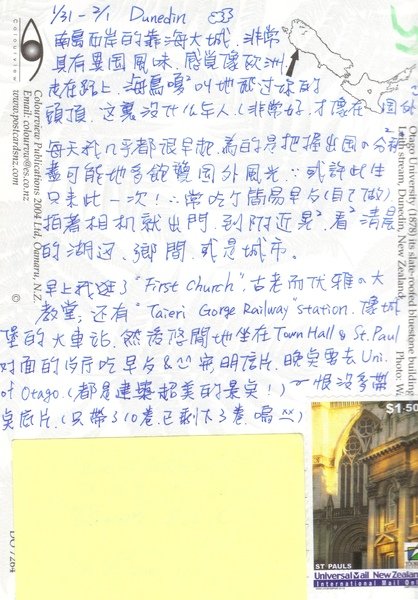 1/31-2/1 Dunedin
南島西岸的靠海大城, 非常
具有異國風味, 感覺像歐洲
走在路上, 海鳥嗚嗚叫地飛過你的
頭頂, 這裏沒什么年人 (非常好, 才像在國外
每天我几乎都很早起, 為的是把握出國の分秒
盡可能地多飽覽國外風光∵或許此生
只來此一次!∴常吃个簡易早午(自己做)
揹著相机就出門, 到附近晃晃看看清晨
的湖边、鄉間, 或是城市。
早上我逛了 "First Church", 古老而优雅の大
教堂; 还有 "Taieri Gorge Railway" station. 像城
堡的火車站, 然后悠閒地坐在Town Hall & St. Paul
对面的吃早午 & 寫完明信片, 晚點要去 Uni.
of Otago (都是建築超美的景点!)~恨沒多帶
点底片. (只帶了10卷, 已剩下3卷, 嗚 xx)
Colourview
Colourview Publications 2004 Ltd, Oamaru, N.Z.
Email: colourview@es.co.nz
www.postcardsnz.com
©
Otago University (1878) its slate-roofed bluestone building
Leith stream, Dunedin, New Zealand.
Photo: W.
DU 7264
$1.50
ST PAULS
Universal Mail New Zealand
International Mail Only